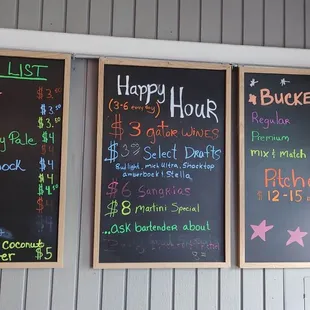 LIST
$3.
$3.
$3.
y Pale $4
ock $4
$4
$4.5
$
$4
Coconut
er $5
Happy Hour
(3-6 every day)
$3 gator WINES
$3 Select Drafts
Bud light, mich Ultra, Shocktop
amberbock! Stella
$6 Sangrias
$8 Martini Special
...ask bartender about
BUCKE
Regular
Premium
mix & match
Pitch
$12-15